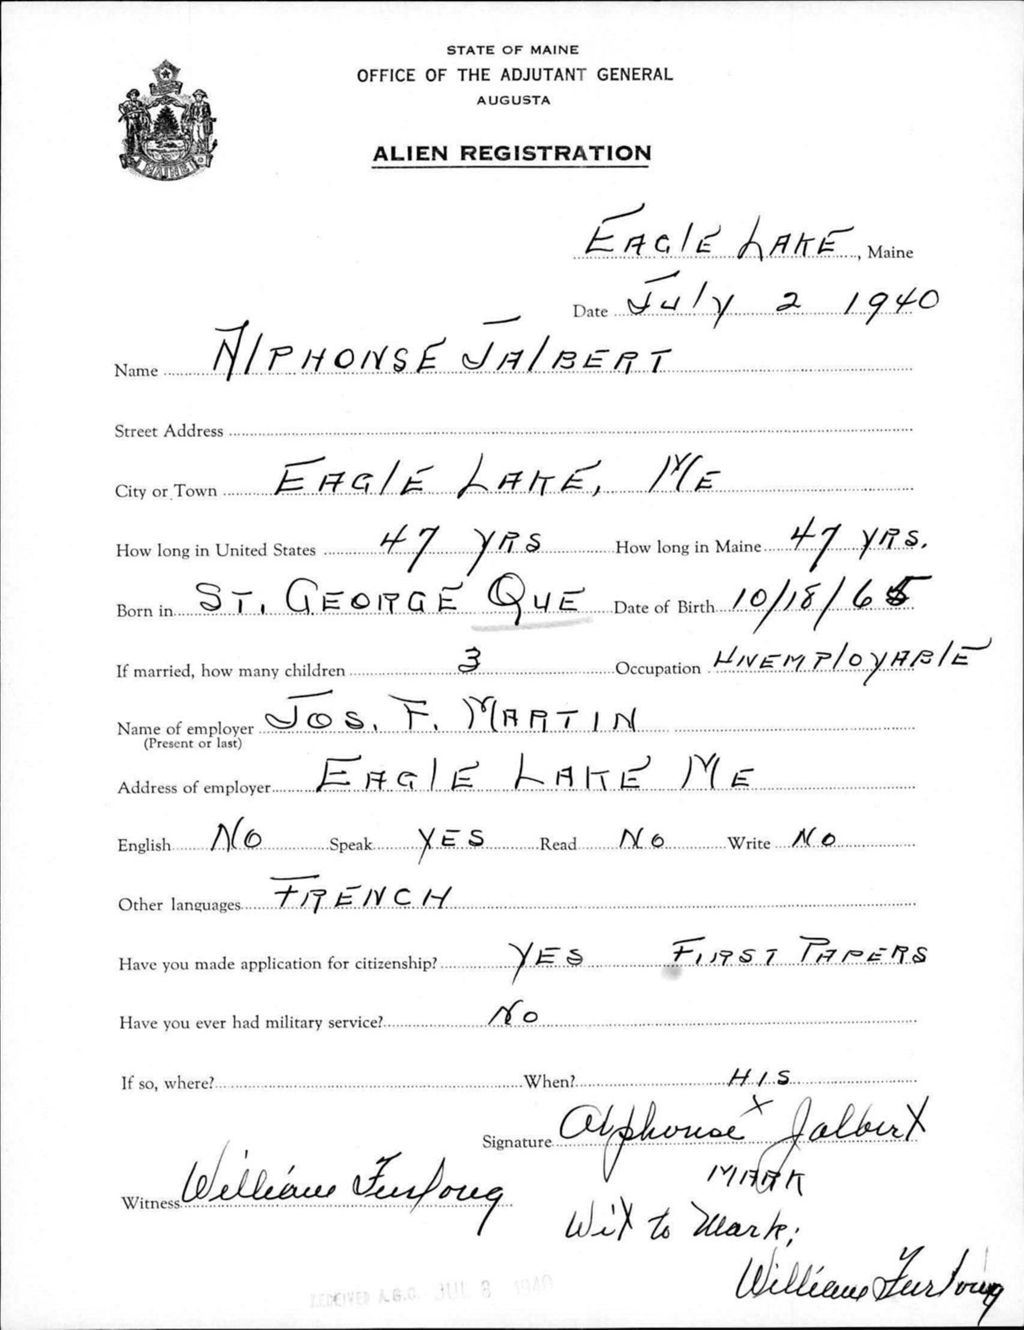 STATE OF MAINE
OFFICE OF THE ADJUTANT GENERAL
AUGUSTA
ALIEN REGISTRATION
MAINE
EAGlE LAKE, Maine
Date July 2 1940
Name AlPHONSE JAlBERT
Street Address
City or Town EAGlE LAKE, ME
How long in United States 47 YRS How long in Maine 47 YRS.
Born in ST. GEORGE QUE Date of Birth 10/18/65
If married, how many children 3 Occupation UNEMPlOYABlE
Name of employer JOS. F. MARTIN
(Present or last)
Address of employer EAGlE LAKE ME
English No Speak YES Read No Write No
Other languages FRENCH
Have you made application for citizenship? YES FIRST PAPERS
Have you ever had military service? No
If so, where? When? HIS
Signature Alphonse X Jalbert
MARK
Witness William Furlong
Wit to Mark;
William Furlong
RECEIVED A.G.O. JUL 8 1940